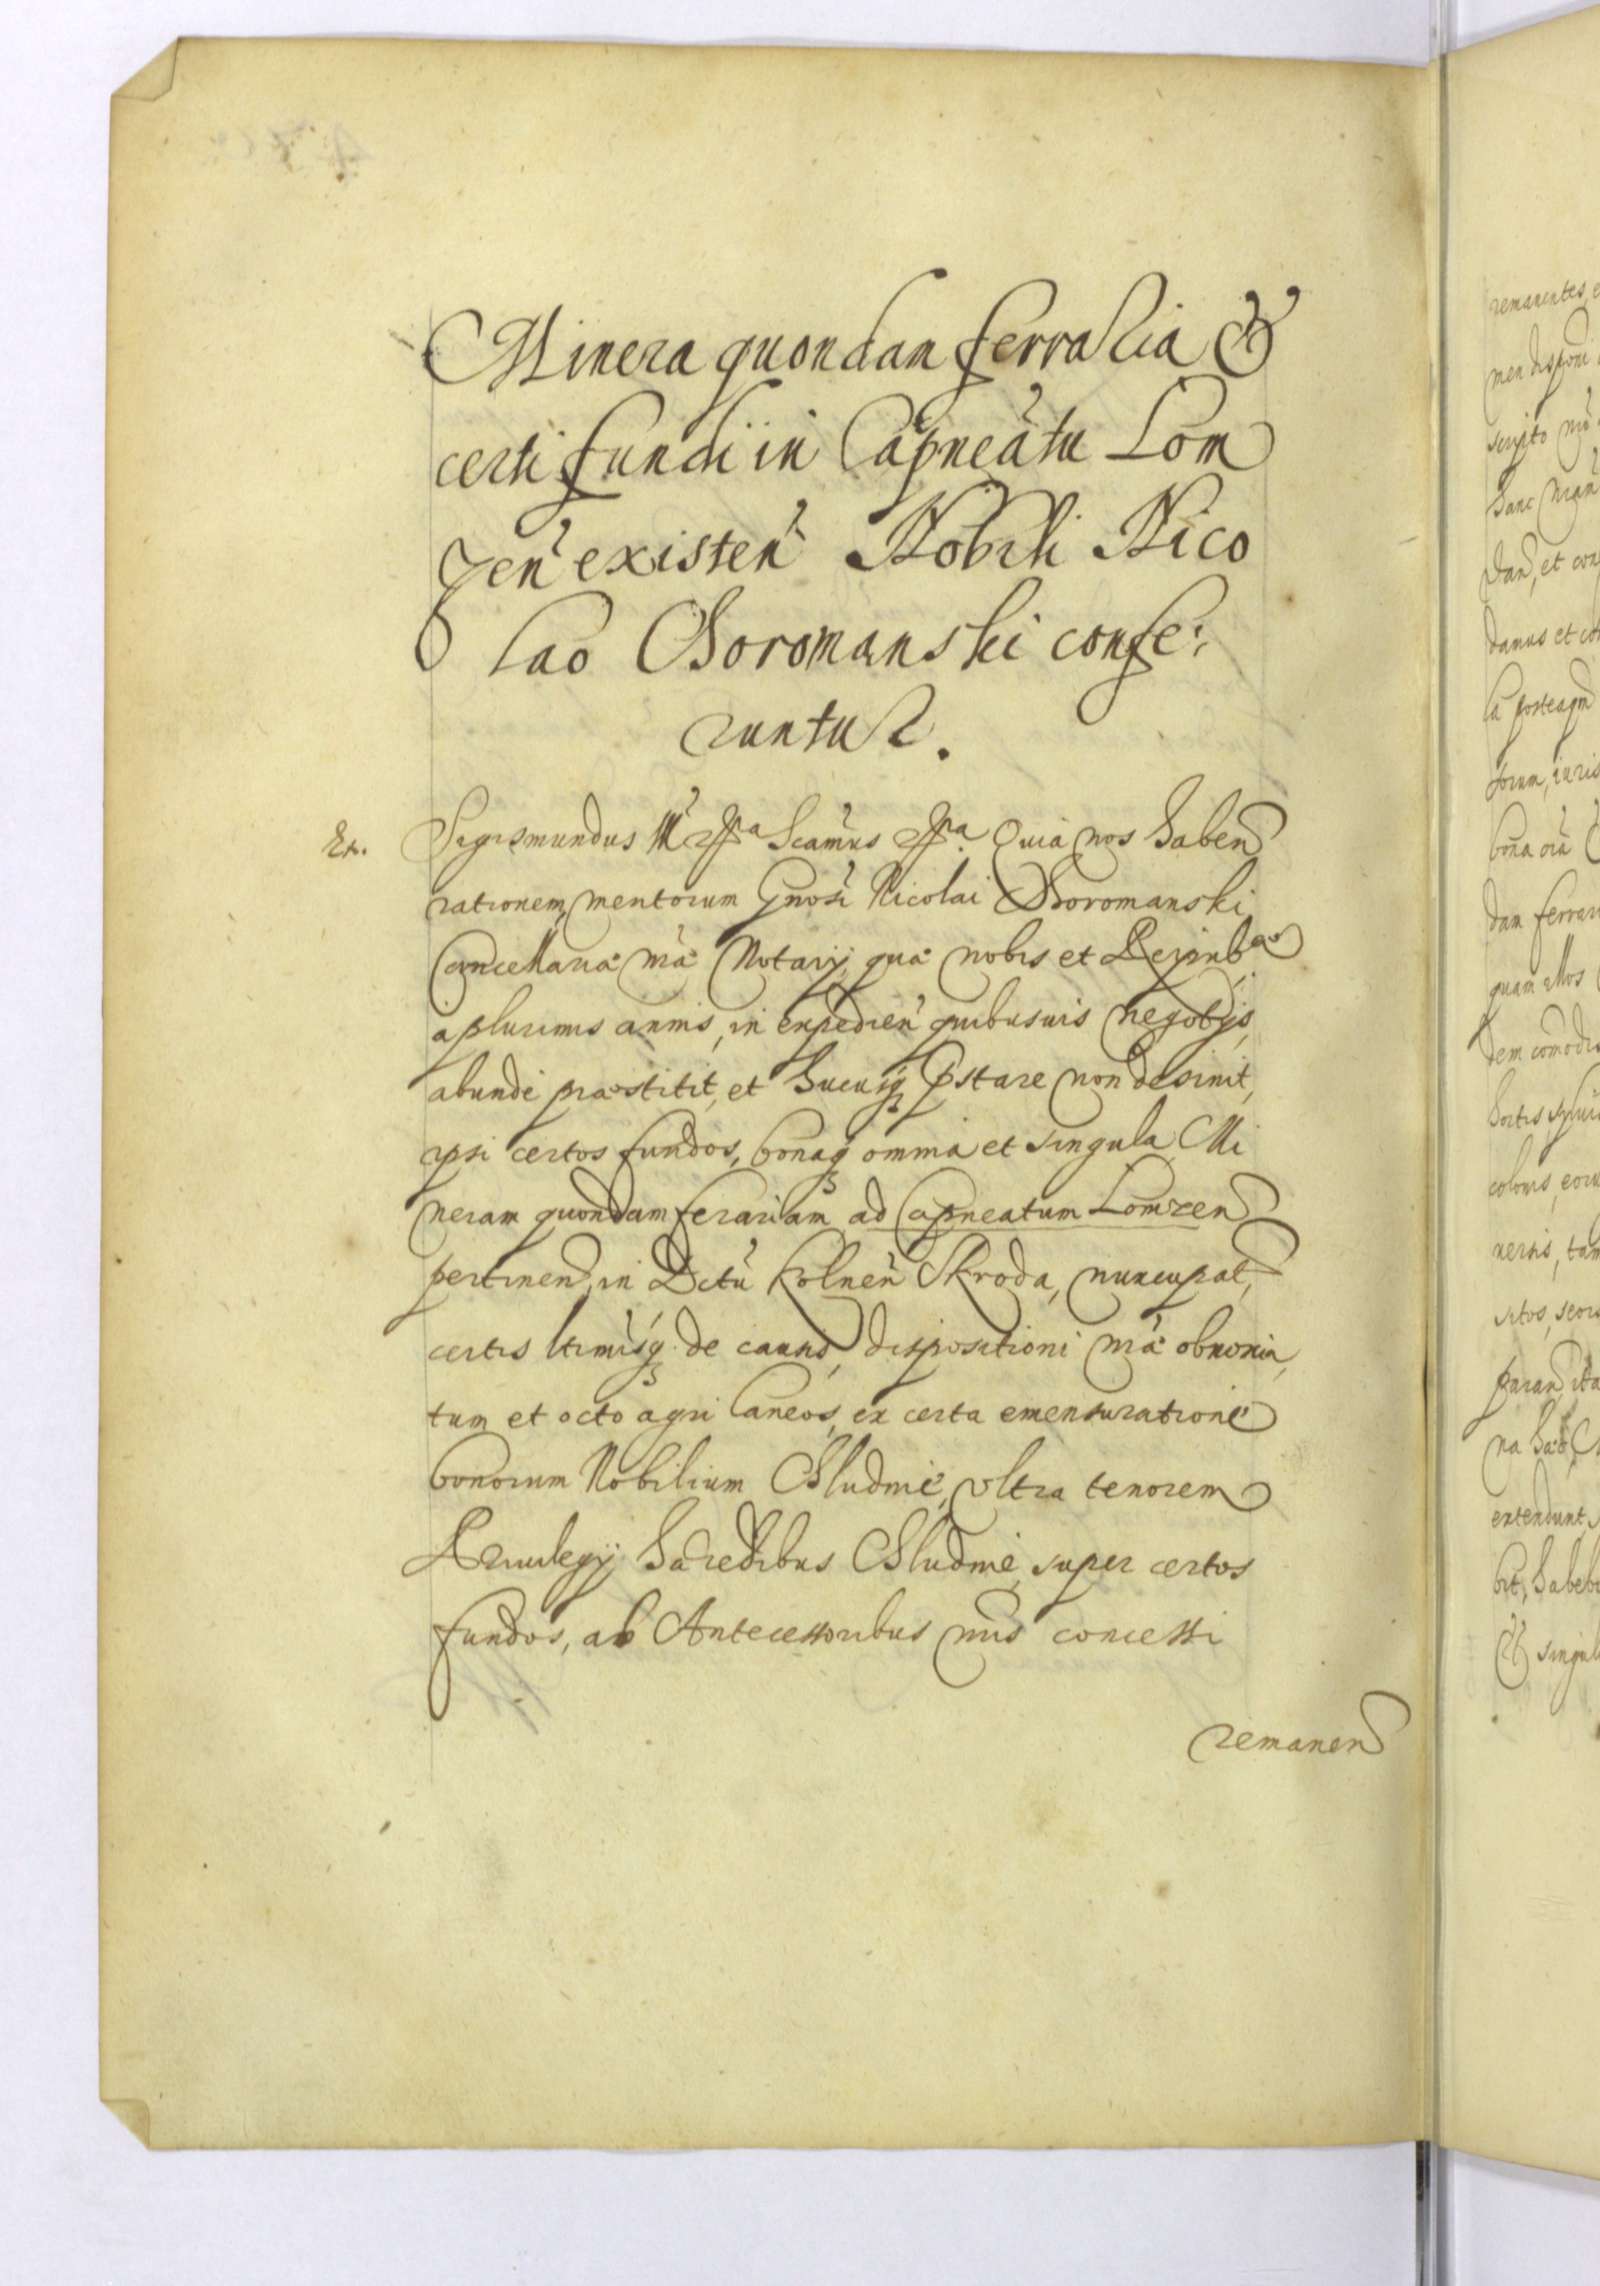 Minera quondam ferralia &
certi fundi in Capneatu Lom
zen existen Nobili Nico
lao Boromanski confe:
runtur.
Et. Sigismundus III etc Scamus etc. Quia nos haben
rationem mentorum Gnosi Nicolai Boromanski
Cancellaria nra Notarij, qua nobis et Reipub
a plurimis annis, in expedien quibusuis negotijs
abunde praestitit, et hucusq pstare non desinit,
ipsi certos fundos, bonaq omnia et singula, Mi
neram quondam ferariam ad Capneatum Lomzen
pertinen, in Dctu Kolnen Skroda, nuncupat,
certis ltimisq de causis, dispositioni nra obnoxia,
tum et octo agri laneos, ex certa emensuratione
bonorum Nobilium Mludnie, vltra tenorem
Priuilegij haeredibus Mludnie, super certos
fundos, ab Antecessoribus nris concessi
remanen
remanentes, e
men disponi
scripto
hanc
dan, et con
damus et co
la posteaqm
torum, iuris
bona oia
dam ferrari
quam illos
dem comodis
hortis
colonis, eoru
uersis, tam
sitos, seors
paran, ita
na
extendunt,
bit, habeb
& singul